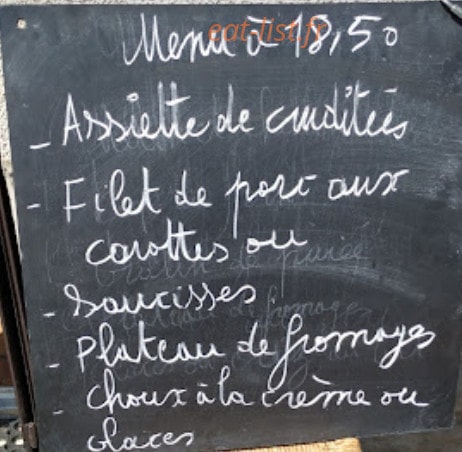 Menu à 18,50
eat-list.fr
- Assiette de cruditées
- Filet de porc aux
carottes ou
- Saucisses
- Plateau de fromages
- Choux à la crème ou
glaces